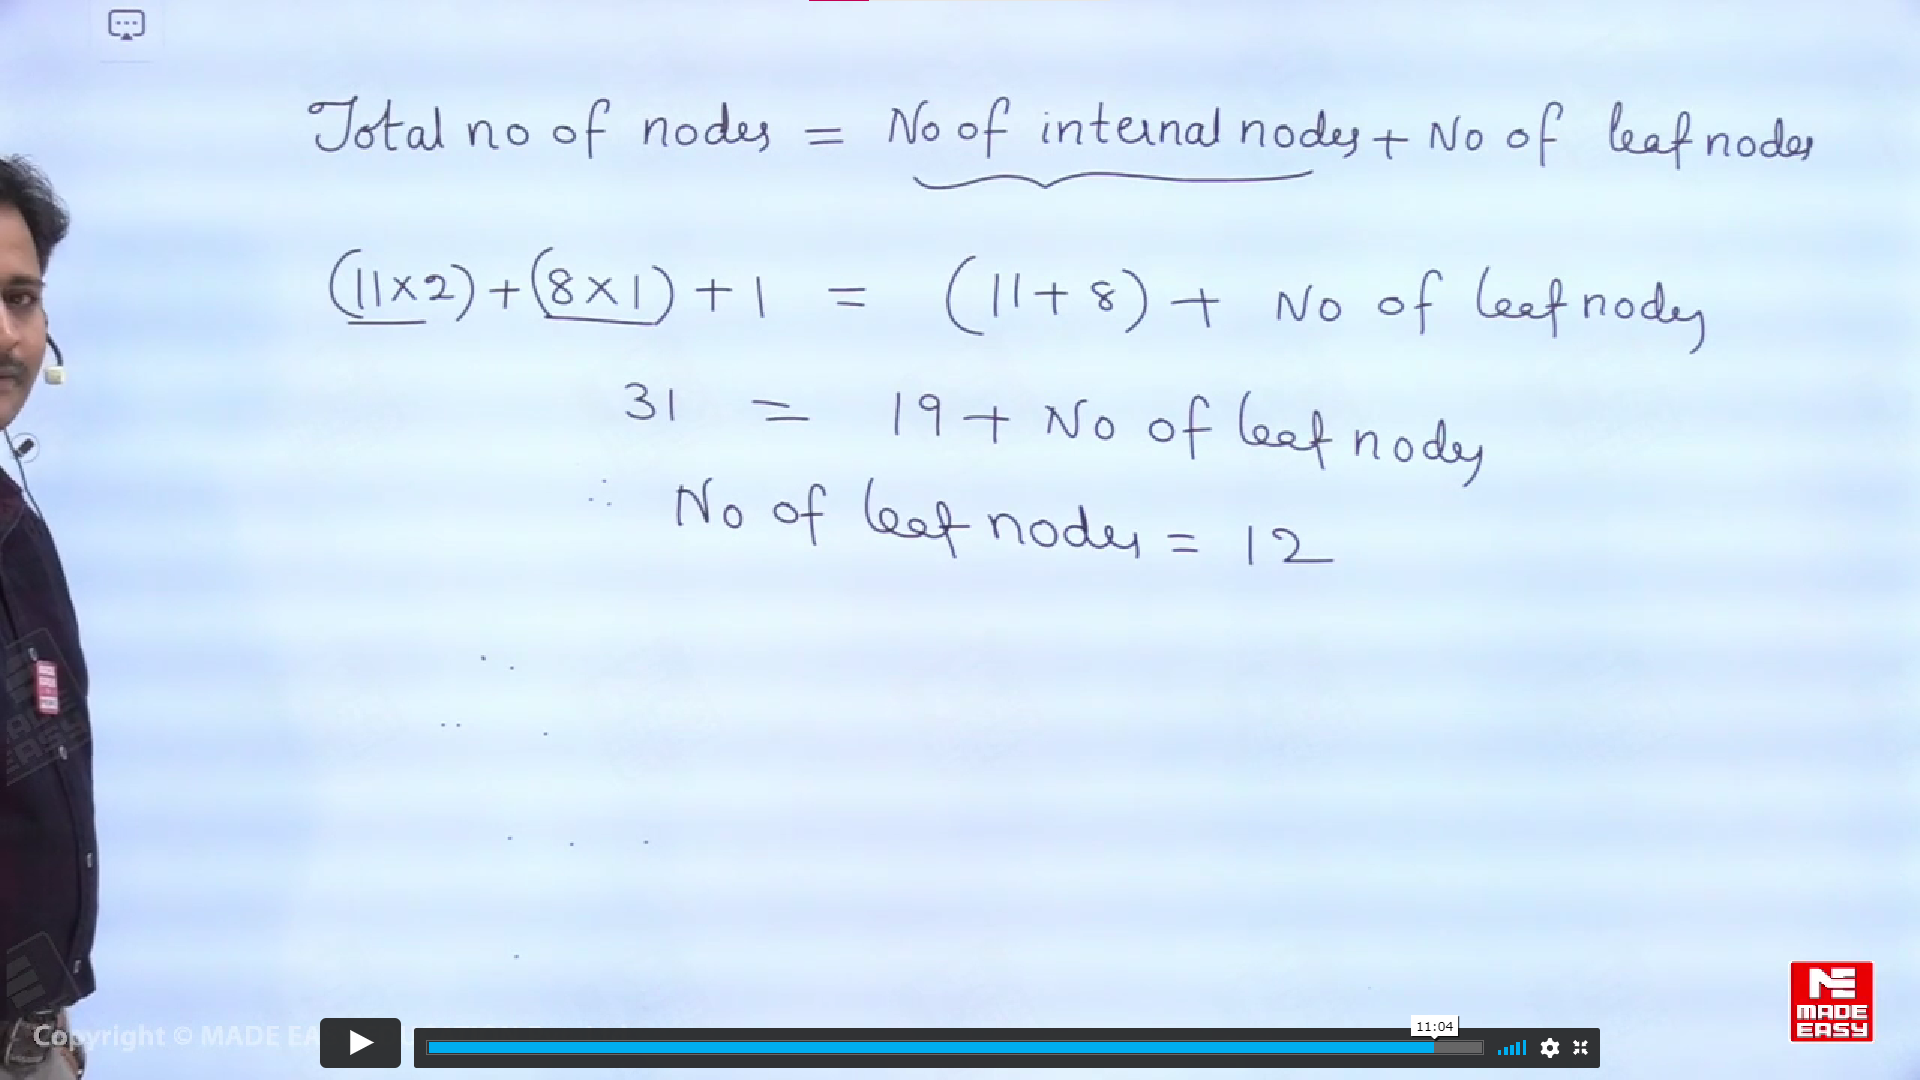 Total no of nodes = No of internal nodes + No of leaf nodes
(11×2) + (8×1) + 1 = (11+8) + No of leaf nodes
31 = 19 + No of leaf nodes
∴ No of leaf nodes = 12
MADE EASY
Copyright © MADE EA
11:04